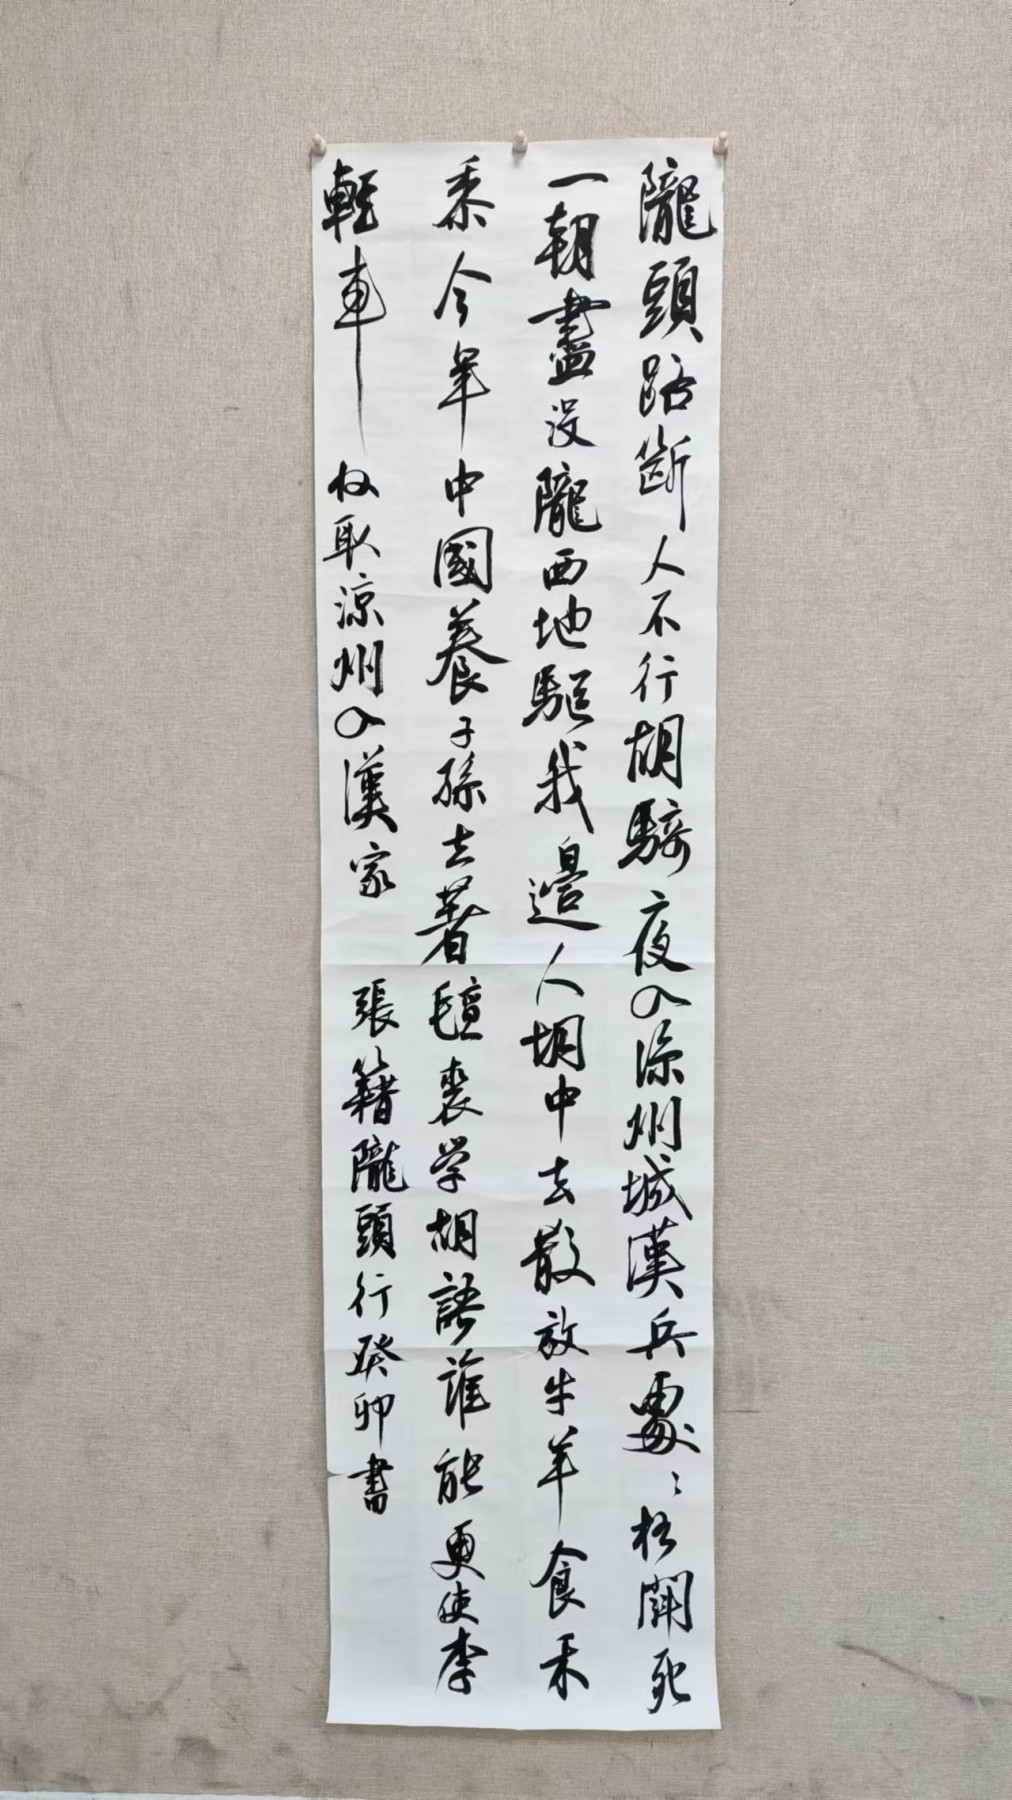 隴頭路斷人不行胡騎夜入涼州城漢兵處〻格鬭死
一朝盡没隴西地驅我邊人胡中去散放牛羊食禾
黍今年中國養子孫去著氊裘学胡語誰能更使李
輕車收取涼州入漢家張籍隴頭行癸卯書